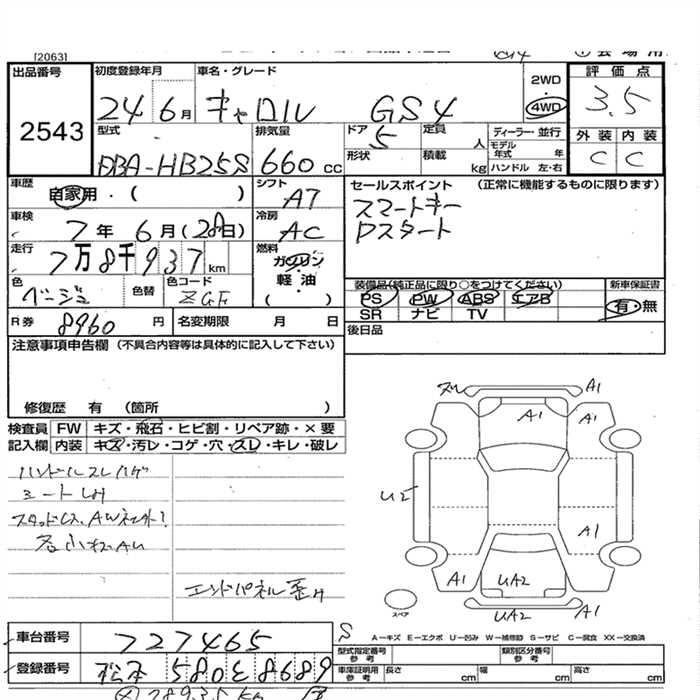 [2063]
出品番号
2543
初度登録年月
24 6月
車名・グレード
キャロル GS4
2WD
4WD
評価点
3.5
外装 内装
C C
型式
DBA-HB25S
排気量
660 cc
ドア
5
定員
人
形状
積載
kg
ディーラー・並行
モデル年式 年
ハンドル 左・右
車歴
自家用・( )
シフト
AT
車検
7年 6月(28日)
冷房
AC
走行
7万8千937km
燃料
ガソリン
軽油
( )
色
ベージュ
色替
色コード
R券
8960 円
名変期限 月 日
セールスポイント (正常に機能するものに限ります)
スマートキー
Pスタート
装備品(純正品に限り○をつけてください)
PS PW ABS エアB
SR ナビ TV
新車保証書
有・無
後日品
注意事項申告欄 (不具合内容等は具体的に記入して下さい)
修復歴 有 (箇所 )
検査員 FW キズ・飛石・ヒビ割・リペア跡・×要
記入欄 内装 キズ・汚レ・コゲ・穴・スレ・キレ・破レ
ハンドルスレハゲ
シートしみ
エンドパネル歪み
A1
A1
A1
U2
A1
A1
UA2
UA2
A1
スペア
S
A-キズ E-エクボ U-凹み W-補修跡 S-サビ C-腐食 XX-交換済
車台番号
727465
登録番号
松本 580 8689
型式指定番号
参考
類別区分番号
参考
車庫証明用
参考
長さ cm 幅 cm 高さ cm